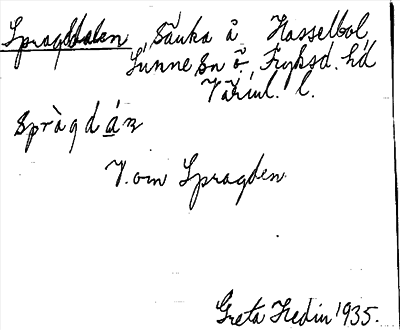 Spragddalen, Sänka å Hasselbol,
Sunne sn Ö. Fryksd. hd
Värml. l.
spràgdán
V. om Spragden
Greta Hedin 1935.